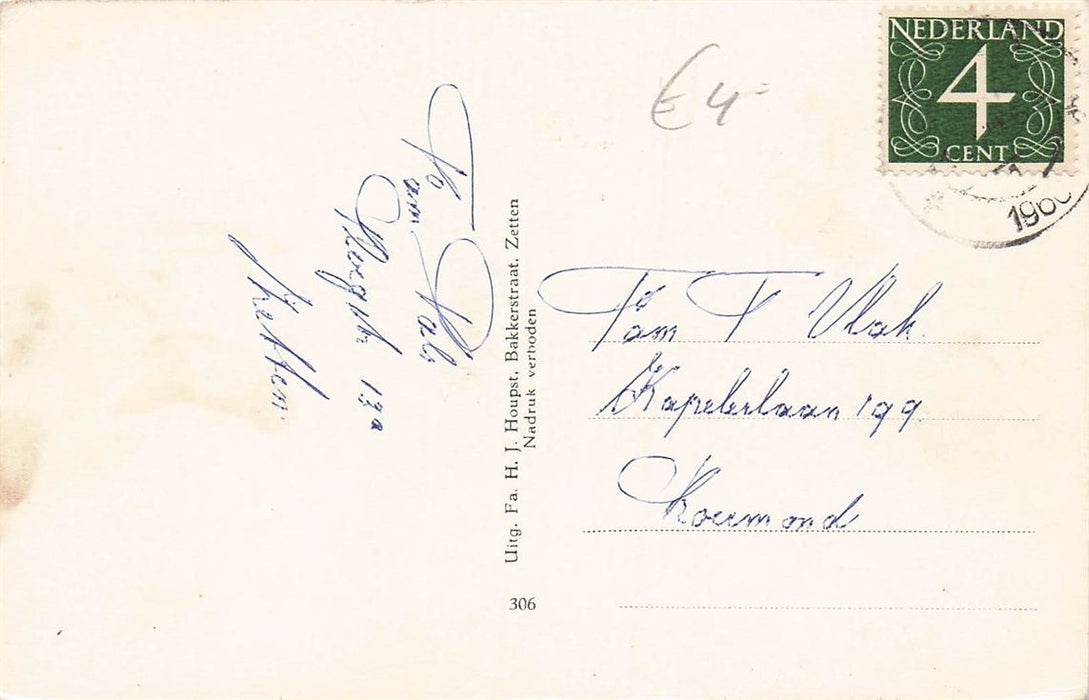 € 4-
NEDERLAND
4
CENT
1960
Fam.
Kerkpl. 13a
Zetten
Uitg. Fa. H. J. Houpst, Bakkerstraat, Zetten
Nadruk verboden
306
Fam T Vlak.
Kapelerlaan 199
Roermond